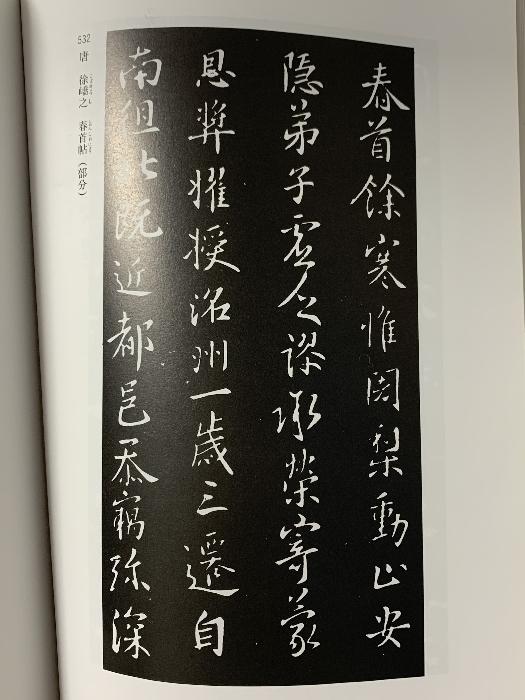 春首餘寒惟闍梨動止安
隱弟子虛乏謬承榮寄蒙
恩奨擢授洺州一歲三遷自
南徂北既近都邑忝竊弥深
532 唐 徐嶠之 春首帖（部分）